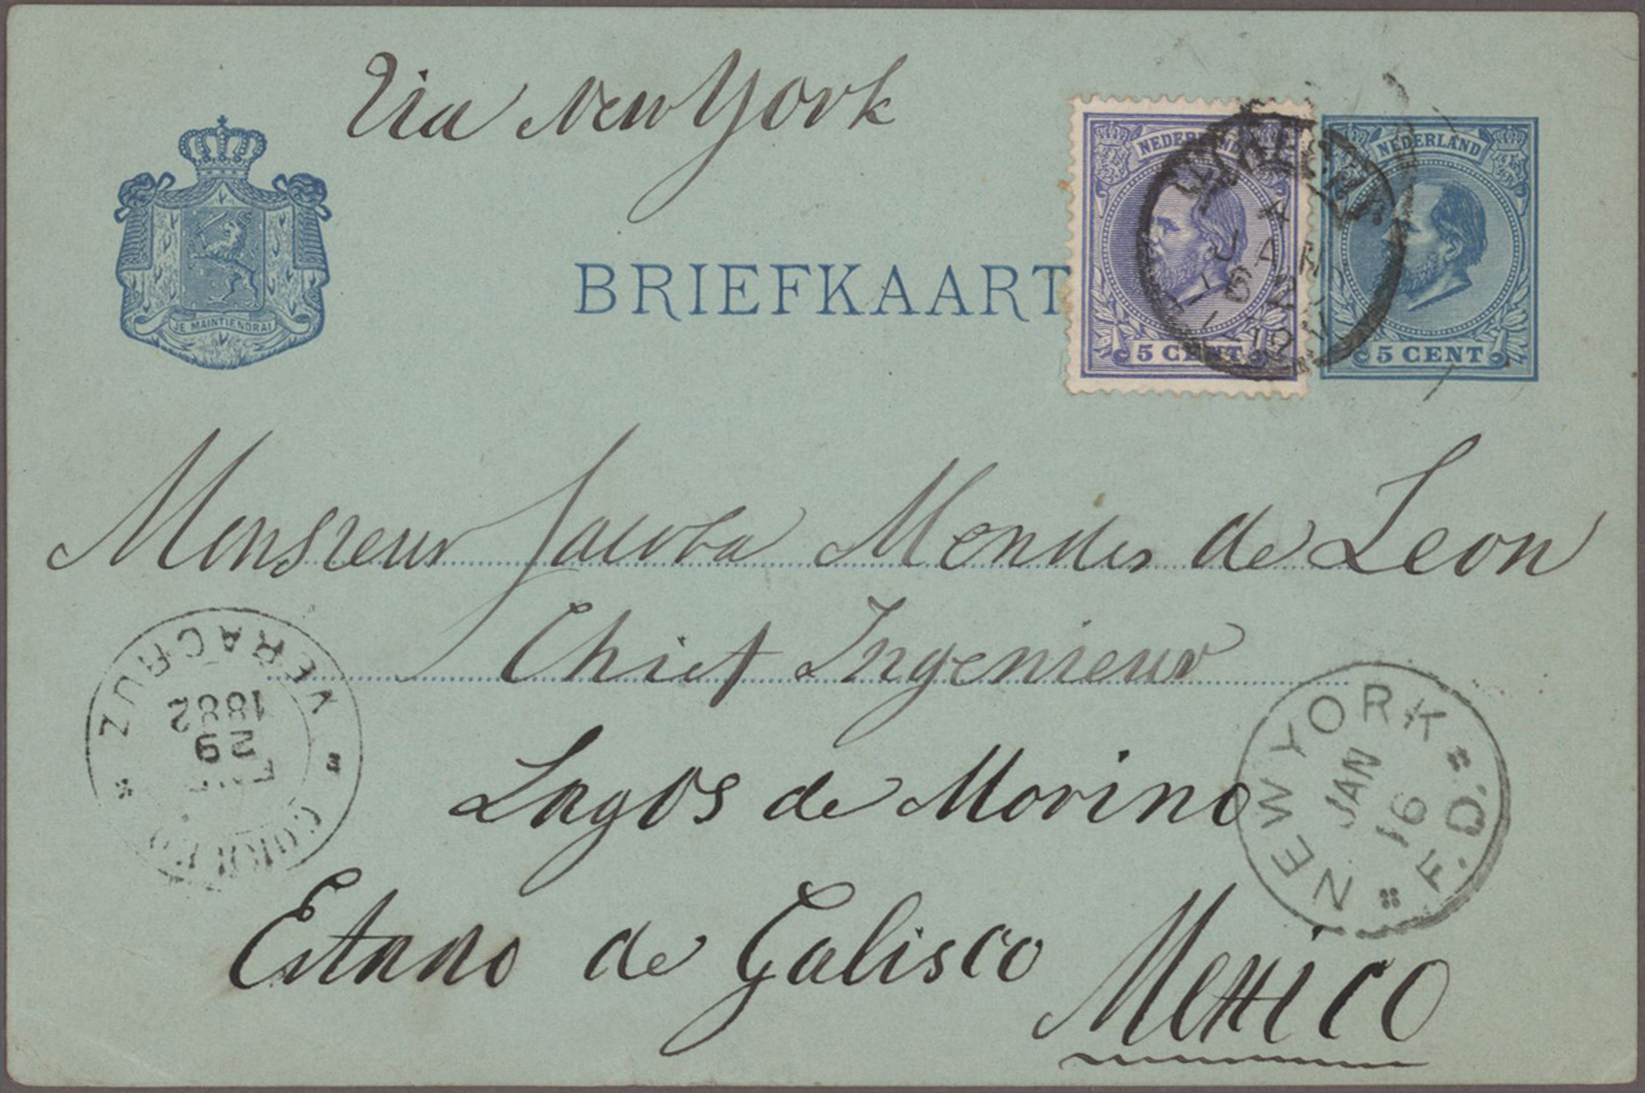 Via New York
JE MAINTIENDRAI
BRIEFKAART
NEDERLAND
5 CENT
NEDERLAND
5 CENT
JAN
Monsieur Jacoba Mendes de Leon
Chief Ingenieur
Lagos de Morino
Estado de Galisco
Mexico
VERACRUZ
1882
29
NEW YORK
JAN
16
F.D.